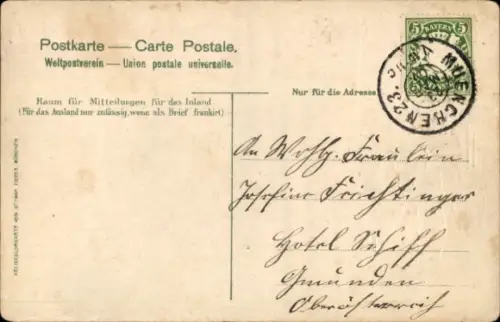 Postkarte — Carte Postale.
Weltpostverein — Union postale universelle.
Raum für Mitteilungen für das Inland
(Für das Ausland nur zulässig, wenn als Brief frankiert)
Nur für die Adresse
5 BAYERN 5
MUENCHEN 23.
An Wohlg. Fräulein
Josefine Feichtinger
Hotel Schiff
Gmunden
Oberösterreich